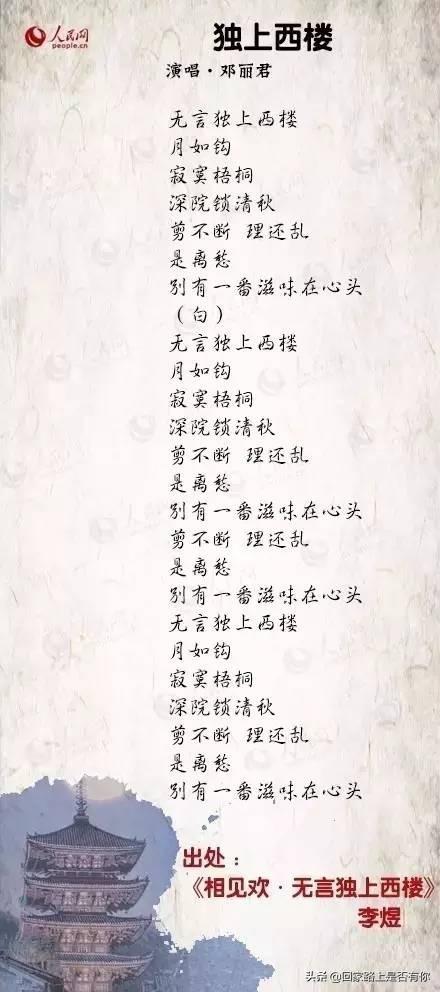 人民网
people.cn
独上西楼
演唱·邓丽君
无言独上西楼
月如钩
寂寞梧桐
深院锁清秋
剪不断 理还乱
是离愁
别有一番滋味在心头
（白）
无言独上西楼
月如钩
寂寞梧桐
深院锁清秋
剪不断 理还乱
是离愁
别有一番滋味在心头
剪不断 理还乱
是离愁
别有一番滋味在心头
无言独上西楼
月如钩
寂寞梧桐
深院锁清秋
剪不断 理还乱
是离愁
别有一番滋味在心头
出处：
《相见欢·无言独上西楼》
李煜
头条@回家路上是否有你